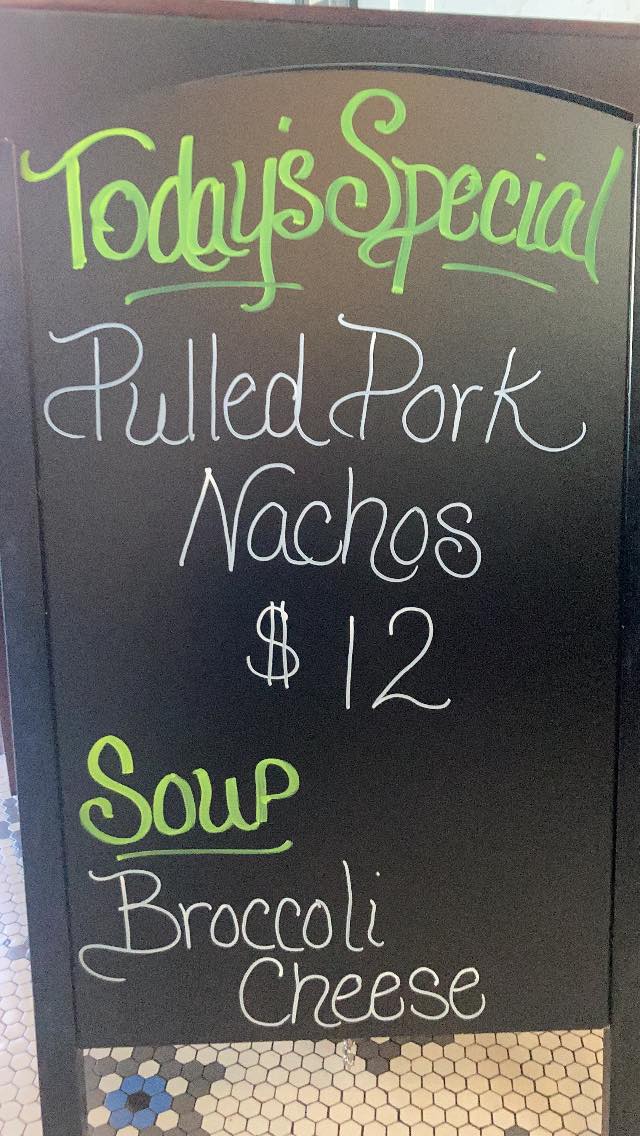 Today's Special
Pulled Pork
Nachos
$12
Soup
Broccoli
Cheese